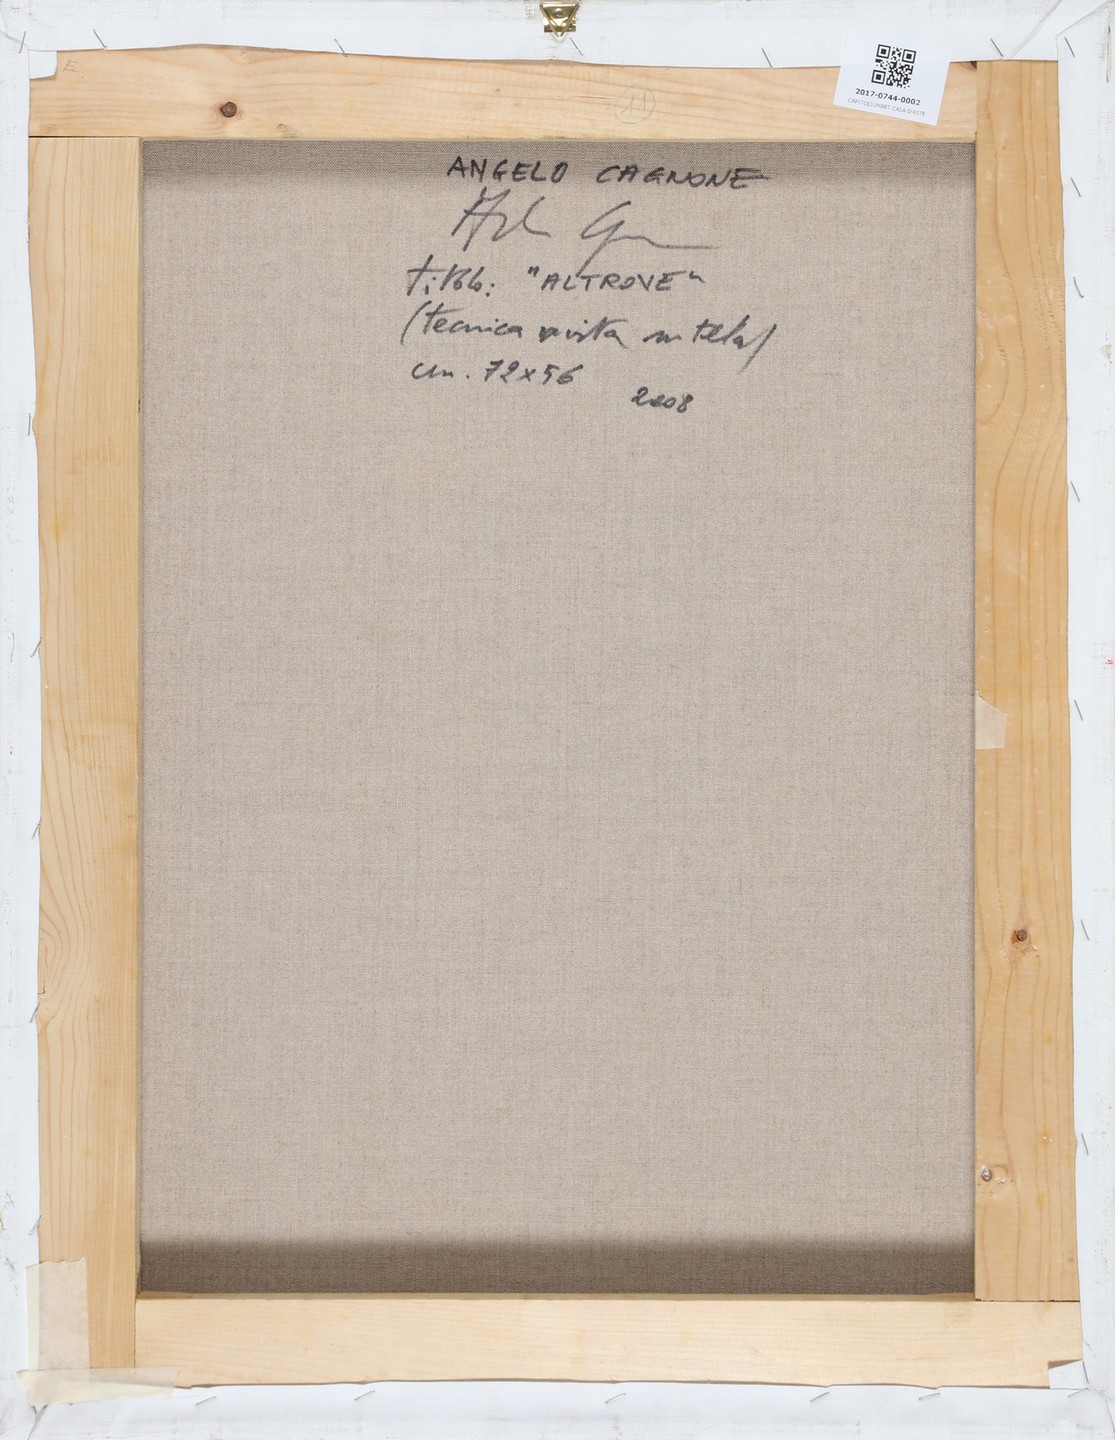 E
11
2017-0744-0002
CAPITOLIUMART CASA D'ASTE
ANGELO CAGNONE
titolo: "ALTROVE"
(tecnica mista su tela)
cm. 72x56
2008